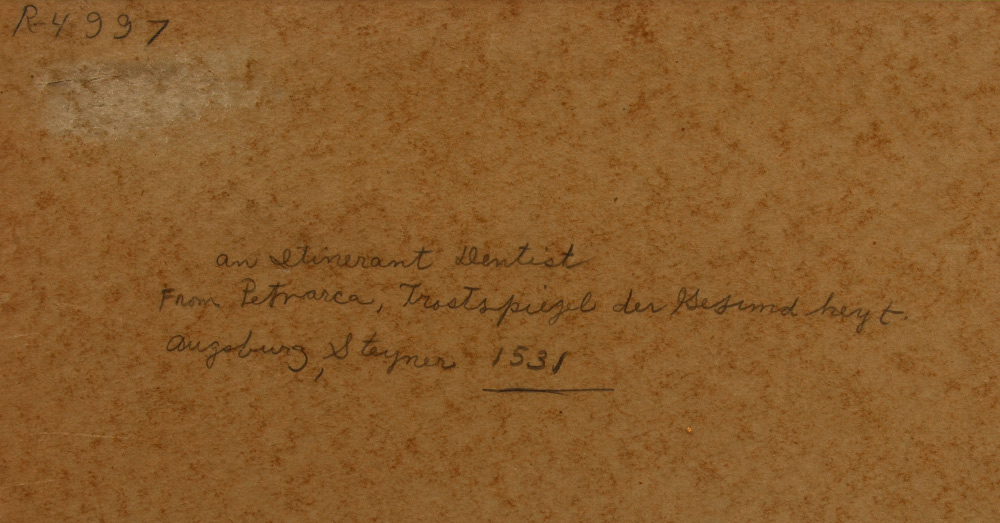 R-4997
an Itinerant Dentist
From Petrarca, Trostspiegel der Gesund heyt.
Augsburg, Steyner 1531